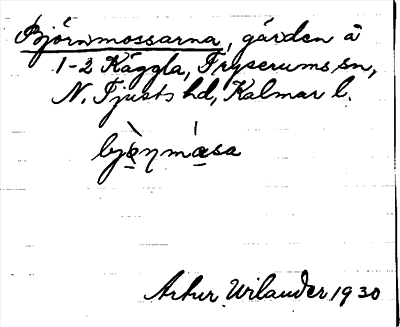 Björnmossarna, gården å
1-2 Käggla, Tryserums sn,
N. Tjusts hd, Kalmar l.
bjö̀ηmása
Artur Wilander 1930